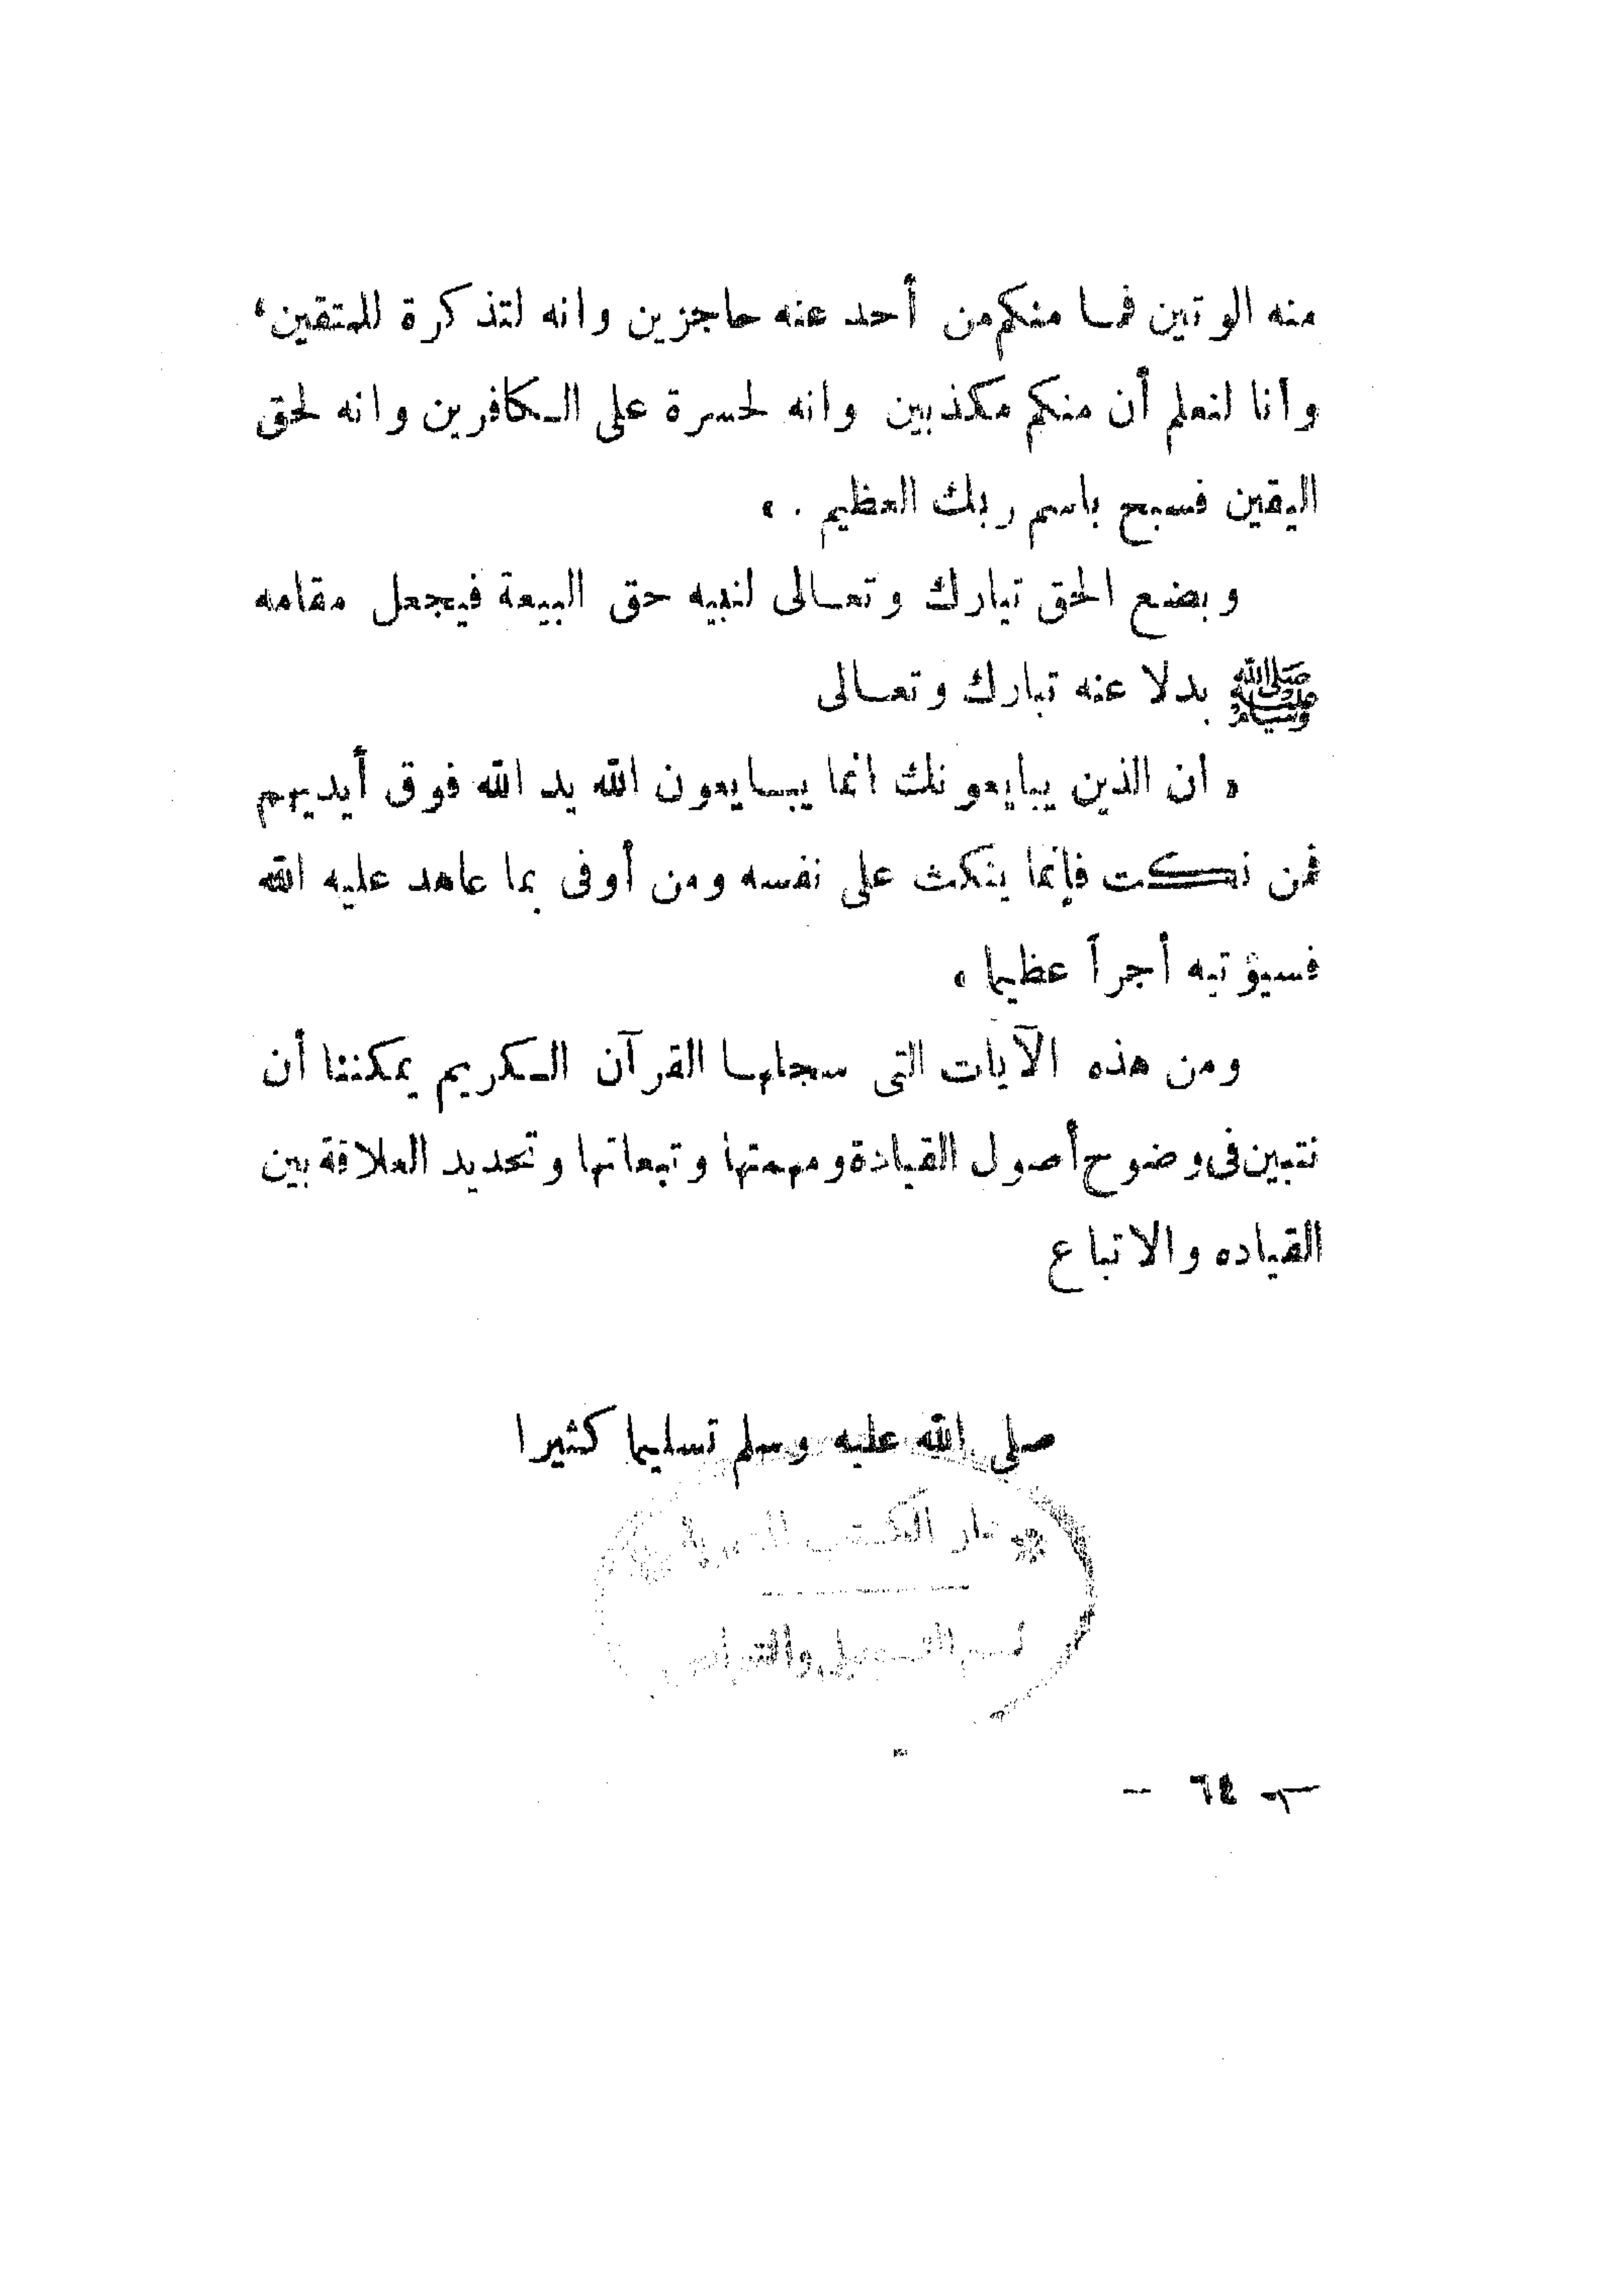 منه الوتين فما منكم من أحد عنه حاجزين وانه لتذكرة للمتقين،
وانا لنعلم أن منكم مكذبين وانه لحسرة على الكافرين وانه لحق
اليقين فسبح باسم ربك العظيم . »
ويضع الحق تبارك وتعالى لنبيه حق البيعة فيجعل مقامه
ﷺ بدلا عنه تبارك وتعالى
« ان الذين يبايعونك انما يبايعون الله يد الله فوق أيديهم
فمن نكث فإنما ينكث على نفسه ومن أوفى بما عاهد عليه الله
فسيؤتيه أجراً عظيما »
ومن هذه الآيات التى سجلها القرآن الكريم يمكننا أن
نتبين فى وضوح أصول القيادة ومهمتها وتبعاتها وتحديد العلاقة بين
القياده والاتباع
صلى الله عليه وسلم تسليما كثيرا
دار الكتب
— ٦٤ —